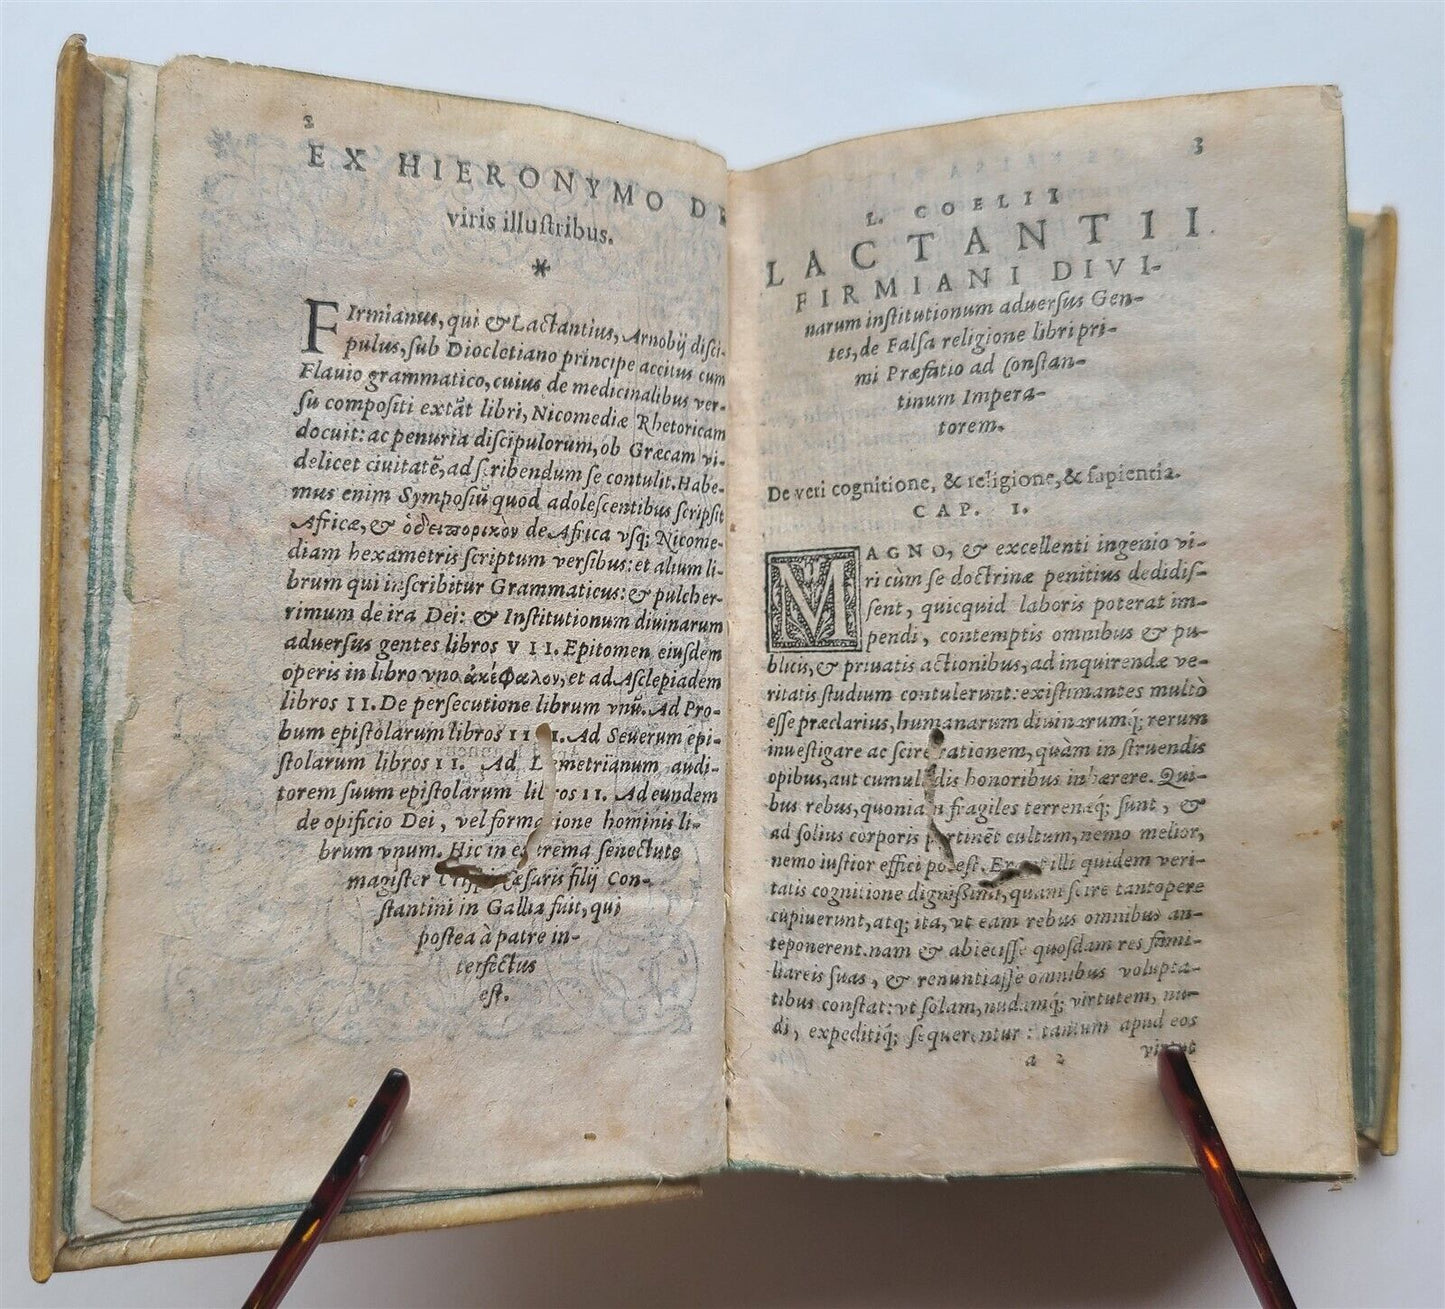 2
EX HIERONYMO DE
viris illuſtribus.
*
FIrmianus, qui & Lactantius, Arnobij diſci-
pulus, ſub Diocletiano principe accitus cum
Flauio grammatico, cuius de medicinalibus ver-
ſu compoſiti extāt libri, Nicomediæ Rhetoricam
docuit: ac penuria diſcipulorum, ob Græcam vi-
delicet ciuitatē, ad ſcribendum ſe contulit. Habe-
mus enim Sympoſiū quod adoleſcentibus ſcripſit
Africæ, & ὁδειπορικον de Africa vſq; Nicome-
diam hexametris ſcriptum verſibus: et alium li-
brum qui inſcribitur Grammaticus: & pulcher-
rimum de ira Dei: & Inſtitutionum diuinarum
aduerſus gentes libros VII. Epitomen eiuſdem
operis in libro vno ἀκέφαλον, et ad Aſclepiadem
libros II. De perſecutione librum vnū. Ad Pro-
bum epiſtolarum libros IIII. Ad Seuerum epi-
ſtolarum libros II. Ad Demetrianum audi-
torem ſuum epiſtolarum libros II. Ad eundem
de opificio Dei, vel formatione hominis li-
brum vnum. Hic in extrema ſenectute
magiſter Cæſaris filij Con-
ſtantini in Gallia fuit, qui
poſtea à patre in-
terfectus
eſt.
3
L. COELII
LACTANTII
FIRMIANI DIVI-
narum inſtitutionum aduerſus Gen-
tes, de Falſa religione libri pri-
mi Præfatio ad Conſtan-
tinum Impera-
torem.
De veri cognitione, & religione, & ſapientia.
CAP. I.
MAGNO, & excellenti ingenio vi-
ri cùm ſe doctrinæ penitius dedidiſ-
ſent, quicquid laboris poterat im-
pendi, contemptis omnibus & pu-
blicis, & priuatis actionibus, ad inquirendæ ve-
ritatis ſtudium contulerunt: exiſtimantes multò
eſſe præclarius, humanarum diuinarumq́; rerum
inueſtigare ac ſcire rationem, quàm in ſtruendis
opibus, aut cumulādis honoribus inhærere. Qui-
bus rebus, quoniam fragiles terrenæq́; ſunt, &
ad ſolius corporis pertinēt cultum, nemo melior,
nemo iuſtior effici poteſt. Erant illi quidem veri-
tatis cognitione digniſſimi, quam ſcire tantopere
cupiuerunt, atq; ita, vt eam rebus omnibus an-
teponerent. nam & abieciſſe quoſdam res fami-
liareis ſuas, & renuntiaſſe omnibus volupta-
tibus conſtat: vt ſolam, nudamq́; virtutem, nu-
di, expeditiq́; ſequerentur: tantum apud eos
a 2 virtut